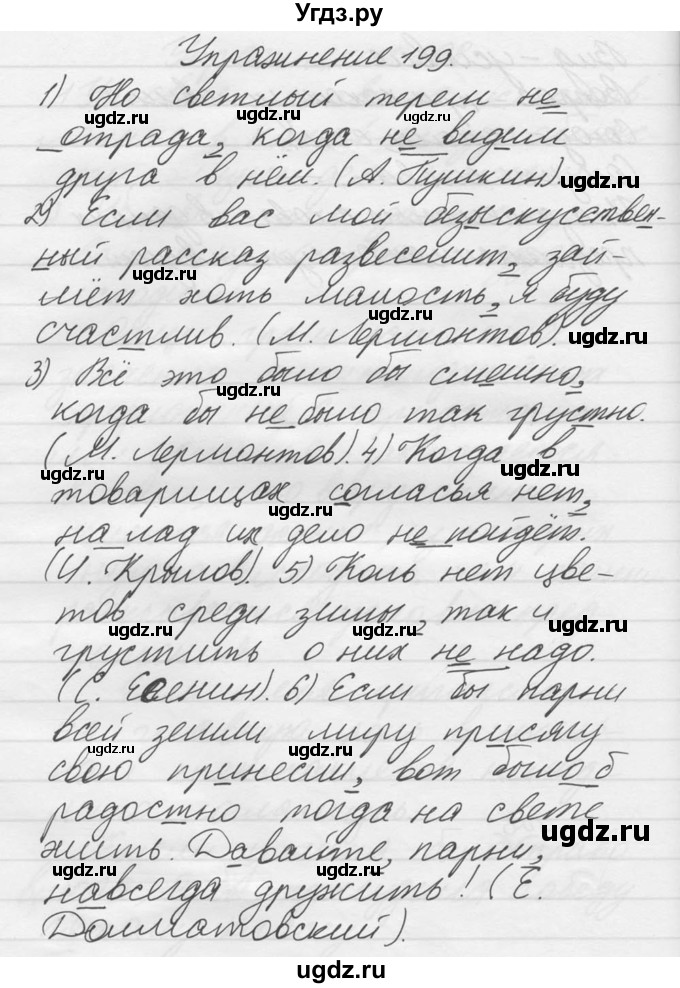 Угдз.ру
Упражнение 199.
1) Но светлый терем не
отрада, когда не видим
друга в нём. (А. Пушкин).
2) Если вас мой безыскусствен-
ный рассказ развеселит, зай-
мёт хоть малость, я буду
счастлив. (М. Лермонтов).
3) Всё это было бы смешно,
когда бы не было так грустно.
(М. Лермонтов). 4) Когда в
товарищах согласья нет,
на лад их дело не пойдёт.
(И. Крылов). 5) Коль нет цве-
тов среди зимы, так и
грустить о них не надо.
(С. Есенин). 6) Если бы парни
всей земли миру присягу
свою принесли, вот было б
радостно тогда на свете
жить. Давайте, парни,
навсегда дружить! (Е.
Долматовский).
ugdz.ru